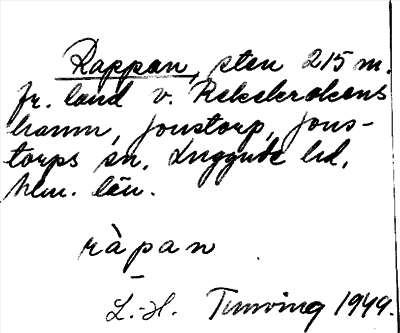 Rappan, sten 215 m.
fr. land v. Rekekrokens
hamn, Jonstorp, Jons-
torps sn, Luggude hd,
Mlm. län.
ràpan
L.-H. Tunving 1949.